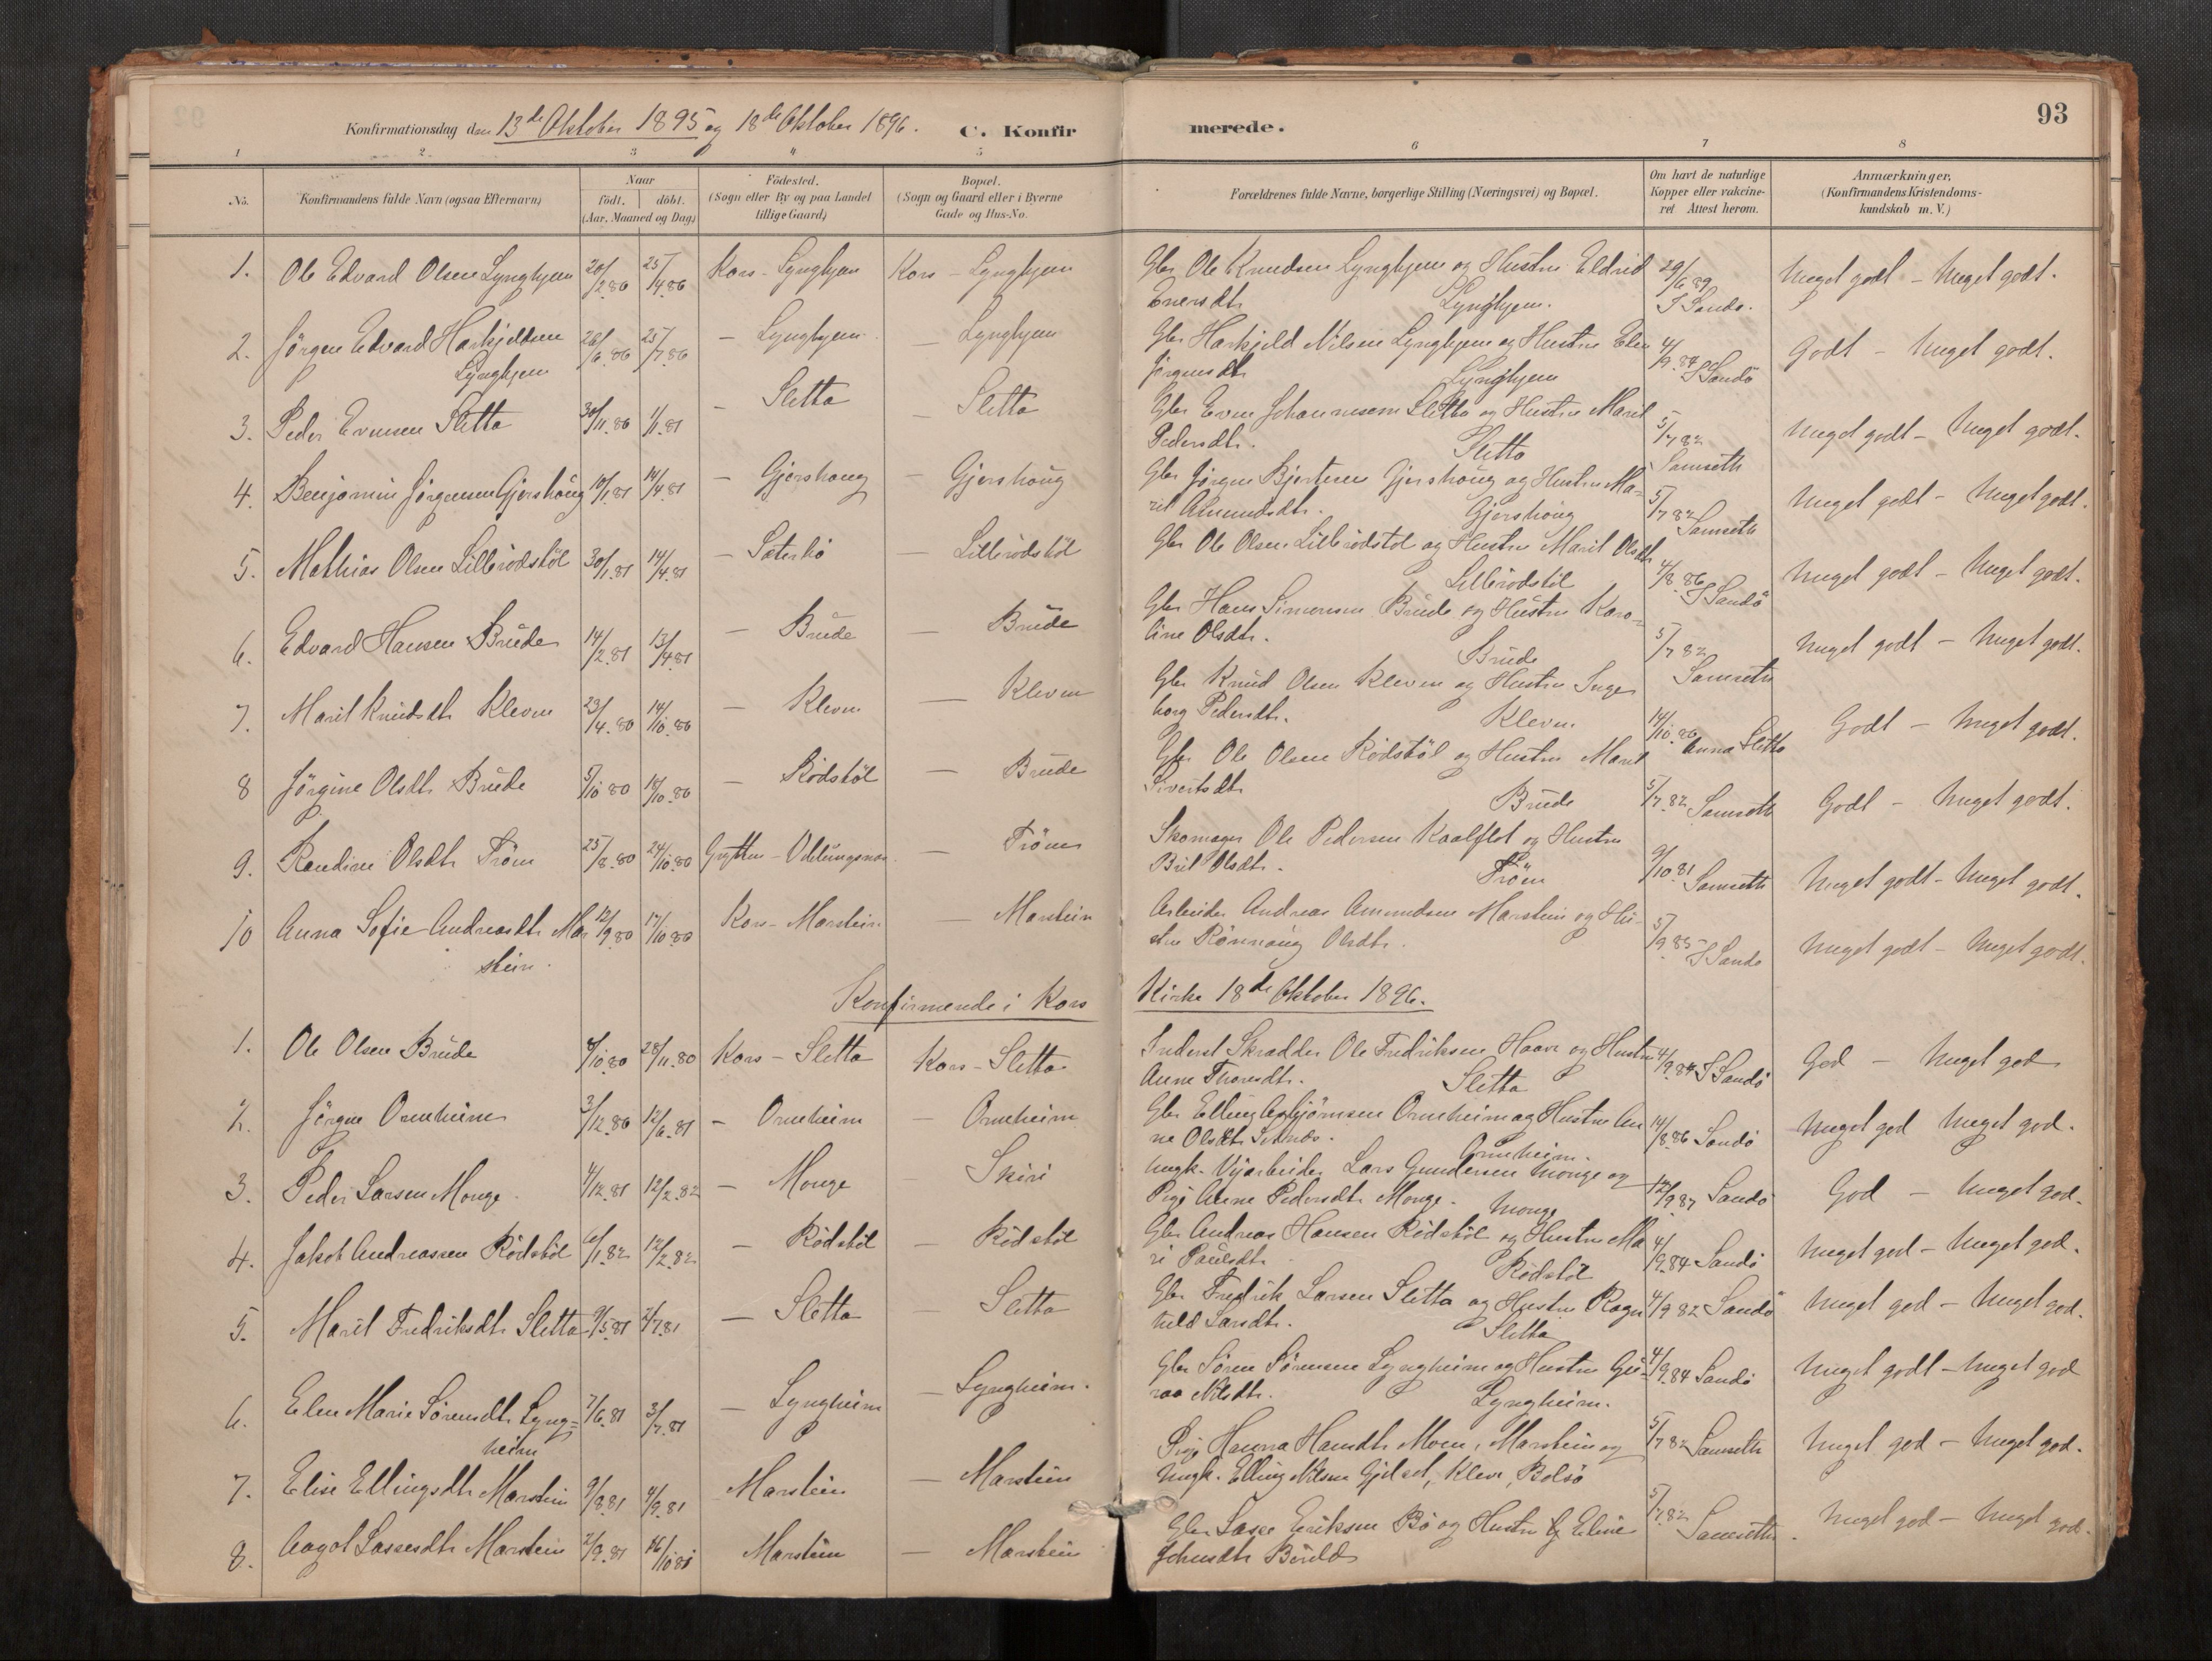 Konfirmationsdag den 13de Oktober 1895 og 18de Oktober 1896. C. Konfirmerede. 93
1 2 3 4 5 6 7 8
No. Konfirmandens fulde Navn (ogsaa Efternavn) Naar født. døbt. (Aar, Maaned og Dag) Fødested. (Sogn eller By og paa Landet tillige Gaard) Bopæl. (Sogn og Gaard eller i Byerne Gade og Hus-No. Forældrenes fulde Navne, borgerlige Stilling (Næringsvei) og Bopæl. Om havt de naturlige Kopper eller vakcineret Attest herom. Anmærkninger, (Konfirmandens Kristendomskundskab m. V.)
1. Ole Edvard Olsen Lynghjem 20/2 80 25/4 80 Kors - Lynghjem Kors - Lynghjem Gbr Ole Knudsen Lynghjem og Hustru Eldrid 29/6 89 Meget godt - Meget godt.
Eversdtr. Lynghjem. S Sandø.
2. Jørgen Edvard Harkjeldsen 26/6 80 25/7 80 - Lynghjem - Lynghjem Gbr Harkjeld Nilsen Lynghjem og Hustru Elen 4/9 84 Godt - Meget godt.
Lynghjem Jørgensdtr Lynghjem S Sandø
3. Peder Evensen Sletta 30/11 80 1/1 81 - Sletta - Sletta Gbr Even Johannesen Sletta og Hustru Marit 5/7 82 Meget godt - Meget godt.
Pedersdtr. Sletta Samseth
4. Benjamin Jørgensen Gjershaug 10/1 81 14/4 81 - Gjershaug - Gjershaug Gbr Jørgen Bjertesen Gjershaug og Hustru Ma- 5/7 82 Meget godt - Meget godt.
rit Amundsdtr. Gjershaug Samseth
5. Mathias Olsen Lillerødstøl 30/1 81 14/4 81 - Sæterbø - Lillerødstøl Gbr Ole Olsen Lillerødstøl og Hustru Marit Olsdtr 4/8 86 Meget godt - Meget godt.
Lillerødstøl S Sandø
6. Edvard Hansen Brude 14/2 81 13/4 81 - Brude - Brude Gbr Hans Simonsen Brude og Hustru Karo- 5/7 82 Meget godt - Meget godt.
line Olsdtr. Brude Samseth
7. Marit Knudsdtr Kleven 23/4 80 14/10 80 - Kleven - Kleven Gbr Knud Olsen Kleven og Hustru Inge- 14/10 86 Godt - Meget godt.
borg Pedersdtr. Kleven Anna Sletta
8 Jørgine Olsdtr Brude 5/10 80 18/10 80 - Rødstøl - Brude Gbr Ole Olsen Rødstøl og Hustru Marit 5/7 82 Samseth Godt - Meget godt.
Sivertsdtr Brude
9. Randine Olsdtr Trøen 25/8 80 24/10 80 Grytten - - Trøen Skomager Ole Pedersen Kaalflot og Hustru 9/10 81 Samseth Meget godt - Meget godt.
Brit Olsdtr. Trøen
10 Anna Sofie Andreasdtr Mar 12/9 80 17/10 80 Kors - Marstein - Marstein Arbeider Andreas Amundsen Marstein og Hu- 5/9 85 Meget godt - Meget godt.
stein. stru Rønnaug Olsdtr. S Sandø
Konfirmerede i Kors Kirke 18de Oktober 1896.
1. Ole Olsen Brude /10 80 28/11 80 Kors - Sletta Kors - Sletta Inderst Skrædder Ole Fredriksen Haave og Hustru 4/9 84 S Sandø God - Meget god
Anne Tharsdtr. Sletta
2. Jørgen Ormheim 3/12 80 12/6 81 - Ormheim - Ormheim Gbr Elling Asbjørnsen Ormheim og Hustru An 14/8 86 Sandø Meget god Meget god.
ne Olsdtr Setnes. Ormheim.
3. Peder Larsen Monge 4/12 81 12/2 82 - Monge - Skiri Ungk. Vejarbeider Lars Gundersen Monge og 12/9 87 Sandø God - Meget god.
Pige Anne Pedersdtr Monge. Monge
4. Jakob Andreassen Rødstøl 6/1 82 12/2 82 - Rødstøl - Rødstøl Gbr Andreas Hansen Rødstøl og Hustru Ma 4/9 84 Sandø Meget god - Meget god.
ri Paulsdtr. Rødstøl
5. Marit Fredriksdtr Sletta 9/5 81 2/7 81 - Sletta - Sletta Gbr Fredrik Larsen Sletta og Hustru Ragn 4/9 82 Sandø Meget god - Meget god.
hild Larsdtr. Sletta
6. Elen Marie Sørensdtr Lyng- 7/6 81 3/7 81 - Lyngheim - Lyngheim. Gbr Søren Sørensen Lyngheim og Hustru Gu- 4/9 84 Sandø Meget godt - Meget god
heim roe Nilsdtr. Lyngheim.
7. Elise Ellingsdtr Marstein 9/8 81 4/9 81 Marstein - Marstein Pige Hanna Hansdtr Moen, Marstein og 5/7 82 Samseth Meget god - Meget god.
Ungk. Elling Nilsen Gjelset, Kleve, Bolsø
8. Aagot Lassesdtr Marstein 2/9 81 16/10 81 Marstein - Marstein Gbr Lasse Eriksen Bø og Hustru Eline 5/7 82 Samseth. Meget god - Meget god.
Johnsdtr